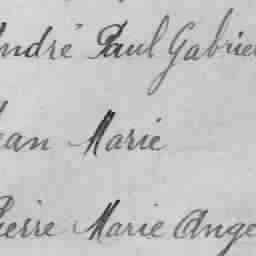 André Paul Gabriel
Jean Marie
Pierre Marie Ange